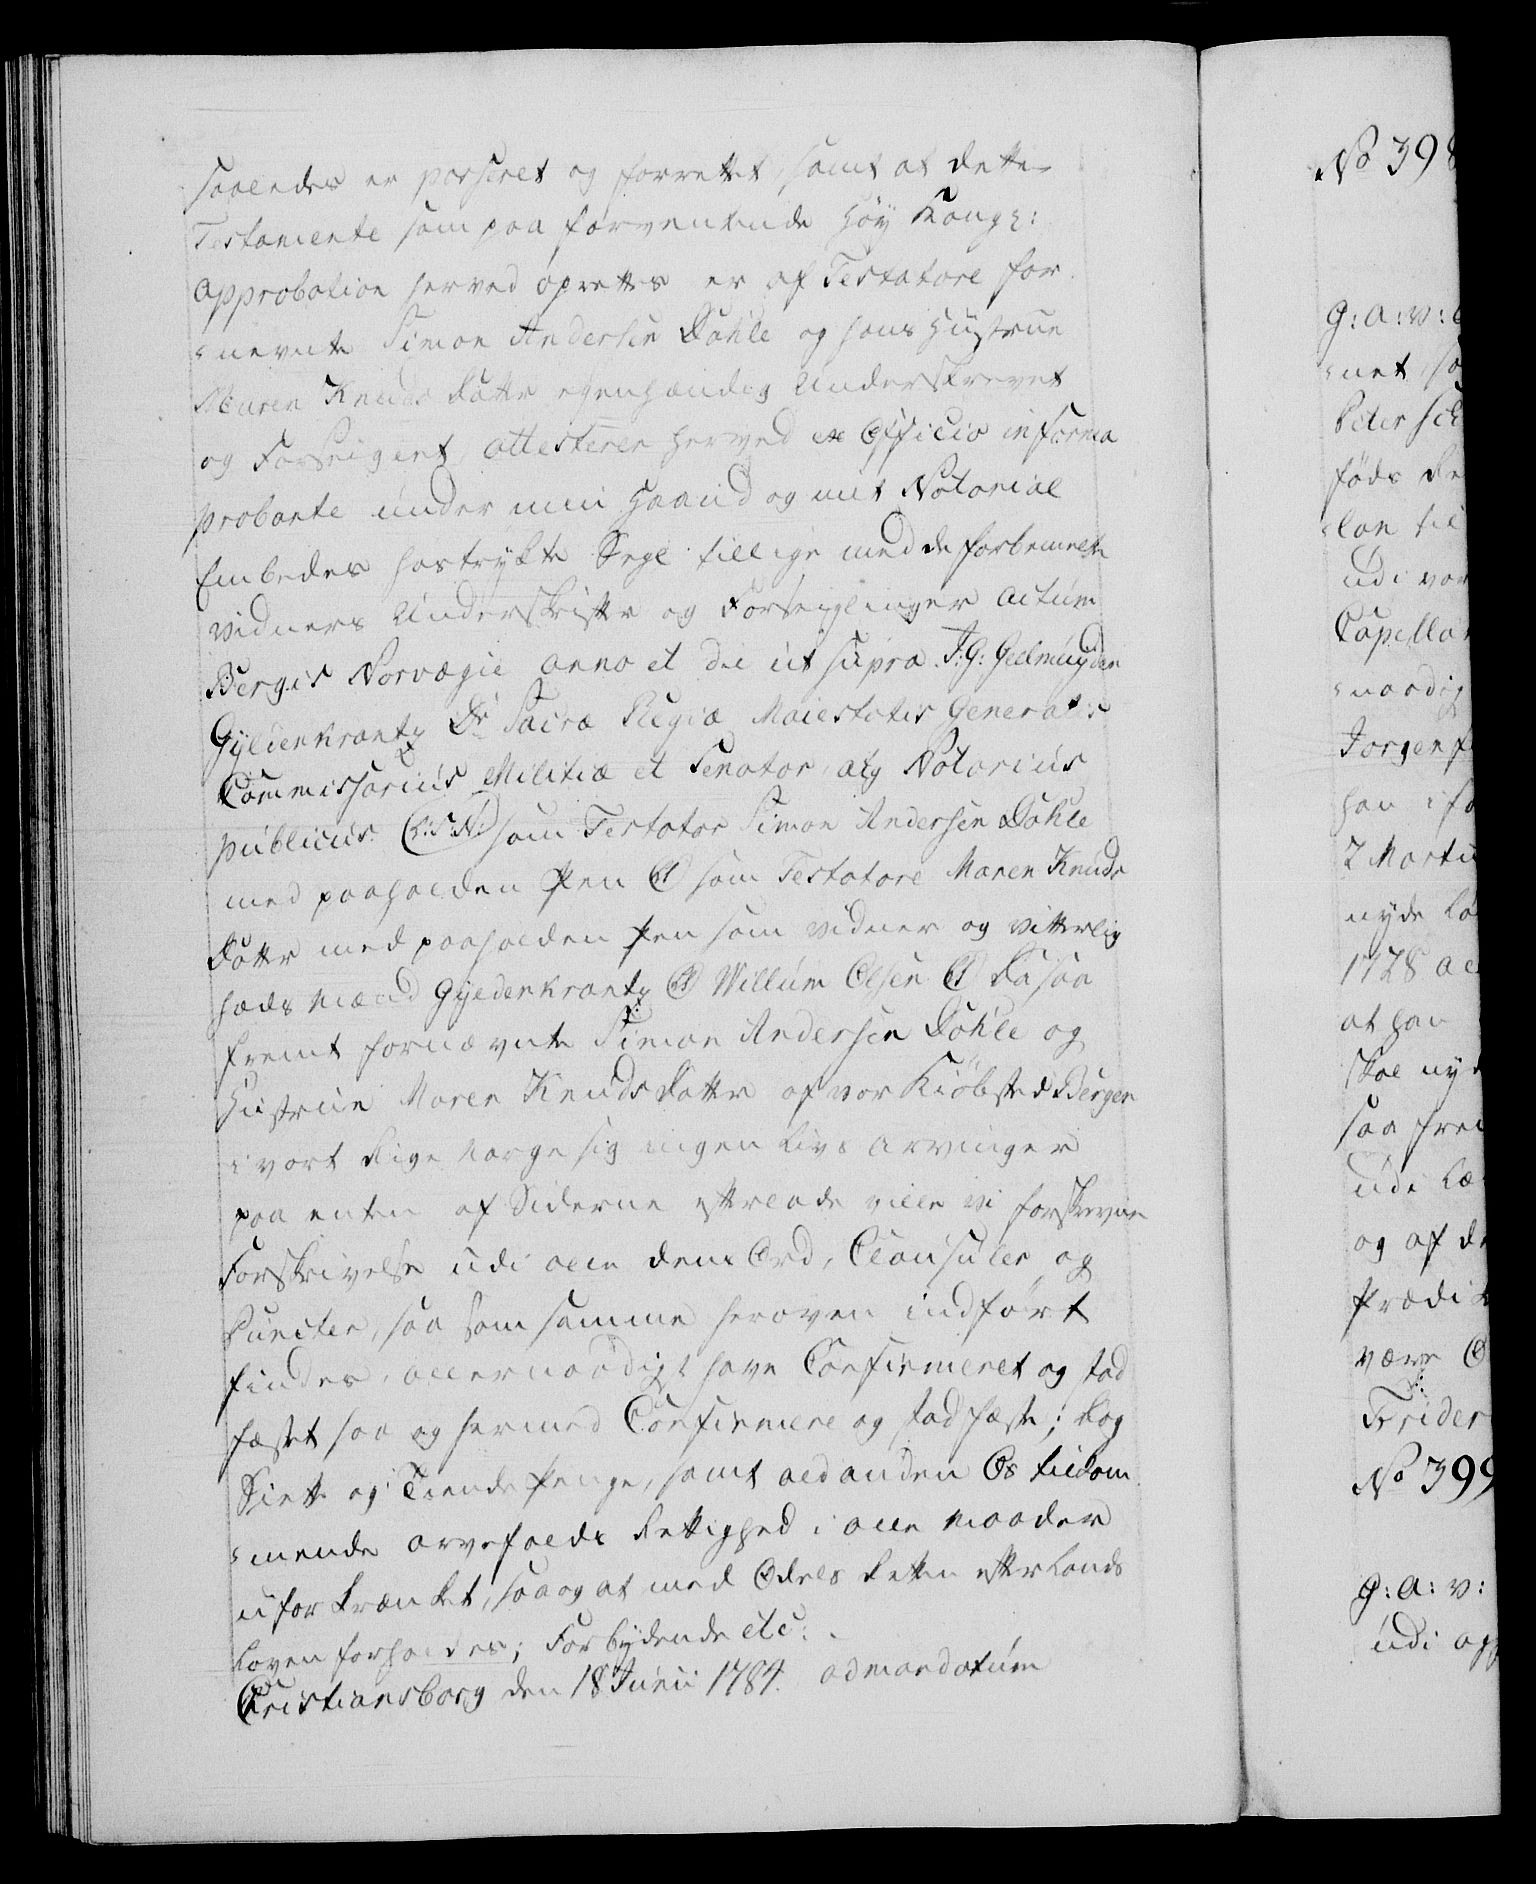 saaledes er passeret og forrettet, samt at dette
Testamente som paa forventende Høy Kongl:
Approbation herved oprettes er af Testatore for
=nevnte Simon Andersen Dahle og hans Hustrue
Maren Knuds Datter egenhændig Underskrevet
og Forseiglet, attesterer herved ex Officio in forma
probante under min Haand og mit Notorial
Embedes hostrykte Segl tillige med de forbemelte
vidners Underskrifter og Forseiglinger Actum
Bergis Norvægiæ anno et die ut supra. J: G: Geelmuyden
Gyldenkrantz Dr Sacræ Regiæ Maiestatis General:
Commissarius Militiæ et Senator, atq Notarius
publicus. (L:S:N:) som Testator Simon Andersen Dahle
med paaholden Pen (LS) som Testatore Maren Knuds
Datter med paaholden Pen som vidner og vitterlig
heds Mænd Gyldenkrantz (LS) Willum Olsen (LS) Da saa
fremt fornævnte Simon Andersen Dahle og
Hustrue Maren Knuds Datter af vor Kiøbsted Bergen
i vort Rige Norge sig ingen Livs Arvinger
paa enten af Siderne efterlade ville vi forskrevne
Forskrivelse udi alle dens Ord, Clausuler og
Puncter, saa som samme heroven indført
findes, allernaadigst have Confirmeret og stad
fæstet saa og hermed Confirmere og stadfæste; Dog
Siette og Tiende Penge, samt ald anden Os tilkom
=mende arvefalds Rettighed i alle Maader
uforkrænket, saa og at med Odels Retten efter Lands
Loven forholdes; Forbydende etc:
Cristiansborg den 18 Junii 1784. ad mandatum
No 398
g: A: v:
=net, so
Peter Sch
føds De
lan til
udi vor
Capellan
=naadig
Jørgen
han i
7 Martii
nyde
1728
at han
skal nyde
saa frem
udi
og af de
Prædik
være
Frider
No 399
g: A: v:
udi